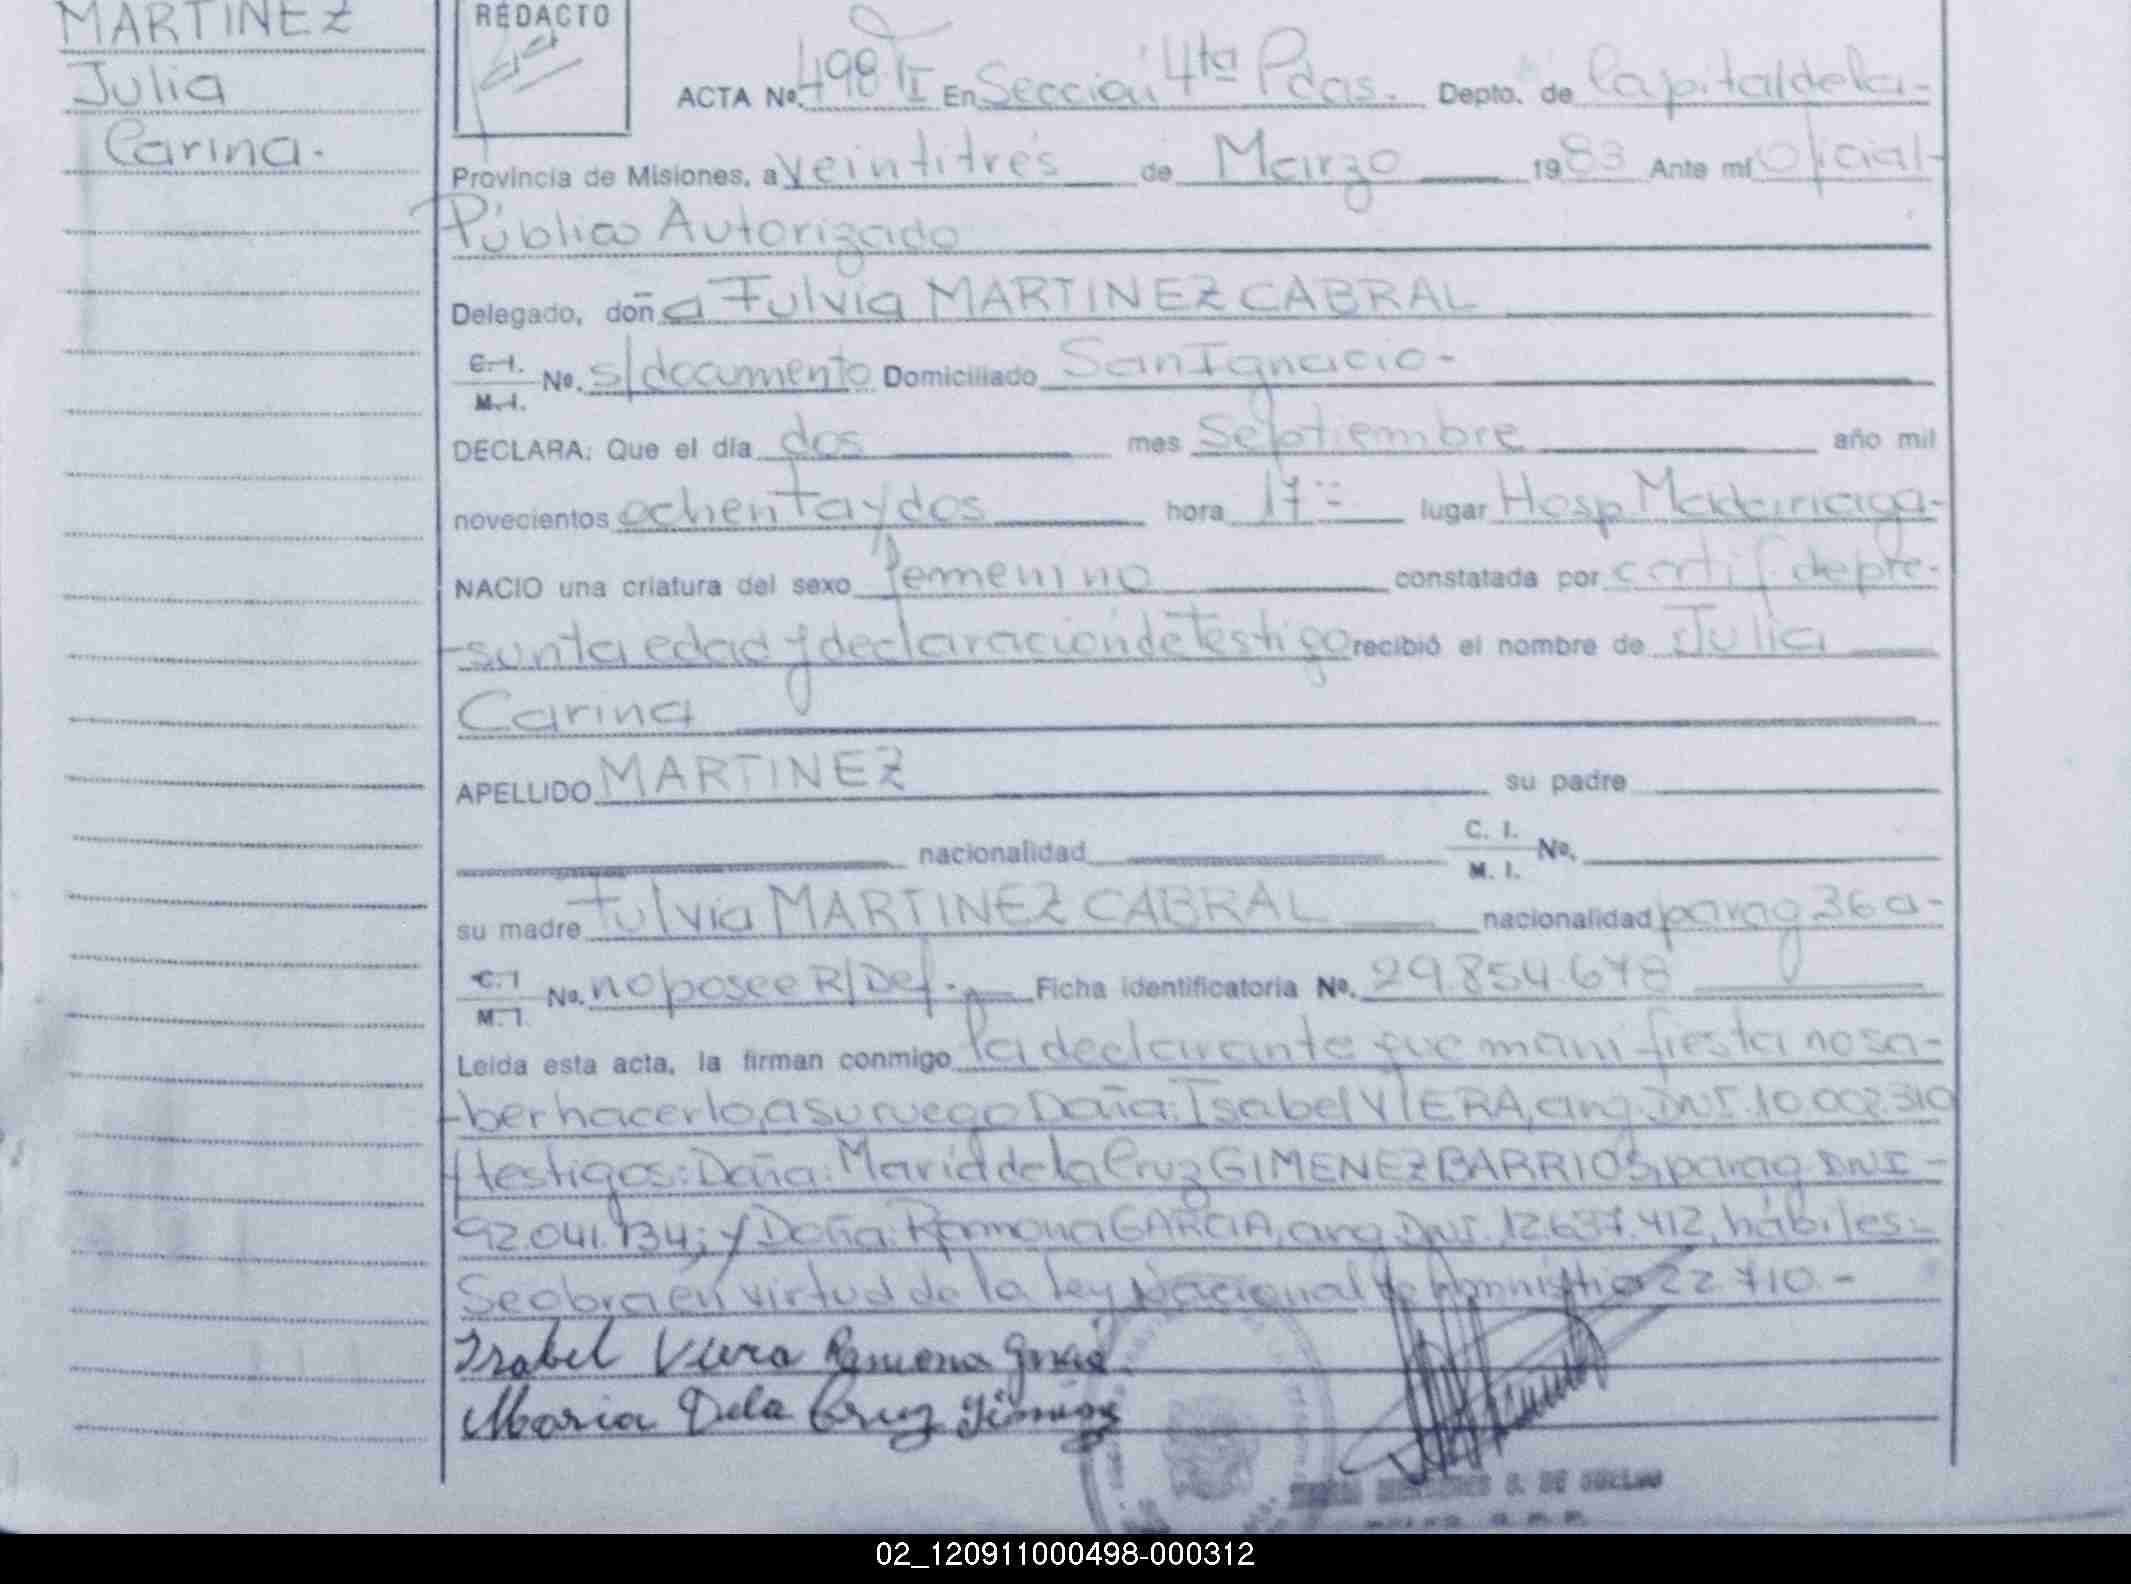 MARTINEZ
Julia
Carina.
REDACTO
ACTA Nº. 498 TI En Sección 4ta Pdas. Depto. de Capital de la-
Provincia de Misiones, a veintitrés de Marzo 1983 Ante mí Oficial-
Público Autorizado
Delegado, doña Fulvia MARTINEZ CABRAL
C.I. M.I. Nº. s/documento Domiciliado San Ignacio-
DECLARA: Que el día dos mes Septiembre año mil
novecientos ochenta y dos hora 17 lugar Hosp Madariaga-
NACIO una criatura del sexo femenino constatada por certif. de pre-
-sunta edad y declaración de testigo recibió el nombre de Julia
Carina
APELLIDO MARTINEZ su padre
nacionalidad C. I. M. I. Nº.
su madre Fulvia MARTINEZ CABRAL nacionalidad parag 36 a-
C.I M.I. Nº. no posee R/Def.- Ficha identificatoria Nº. 29.854.678
Leída esta acta, la firman conmigo la declarante que manifiesta no sa-
-ber hacerlo, a su ruego Doña: Isabel VIERA, arg. DNI. 10.002.310
y testigos: Doña: María de la Cruz GIMENEZ BARRIOS, parag. DNI-
92.041.134; y Doña: Ramona GARCIA, arg. DNI. 12.637.412, hábiles-
Se obra en virtud de la Ley Nacional de Amnistia 22.710.-
Isabel Viera Ramona
Maria Dela Cruz
02_120911000498-000312